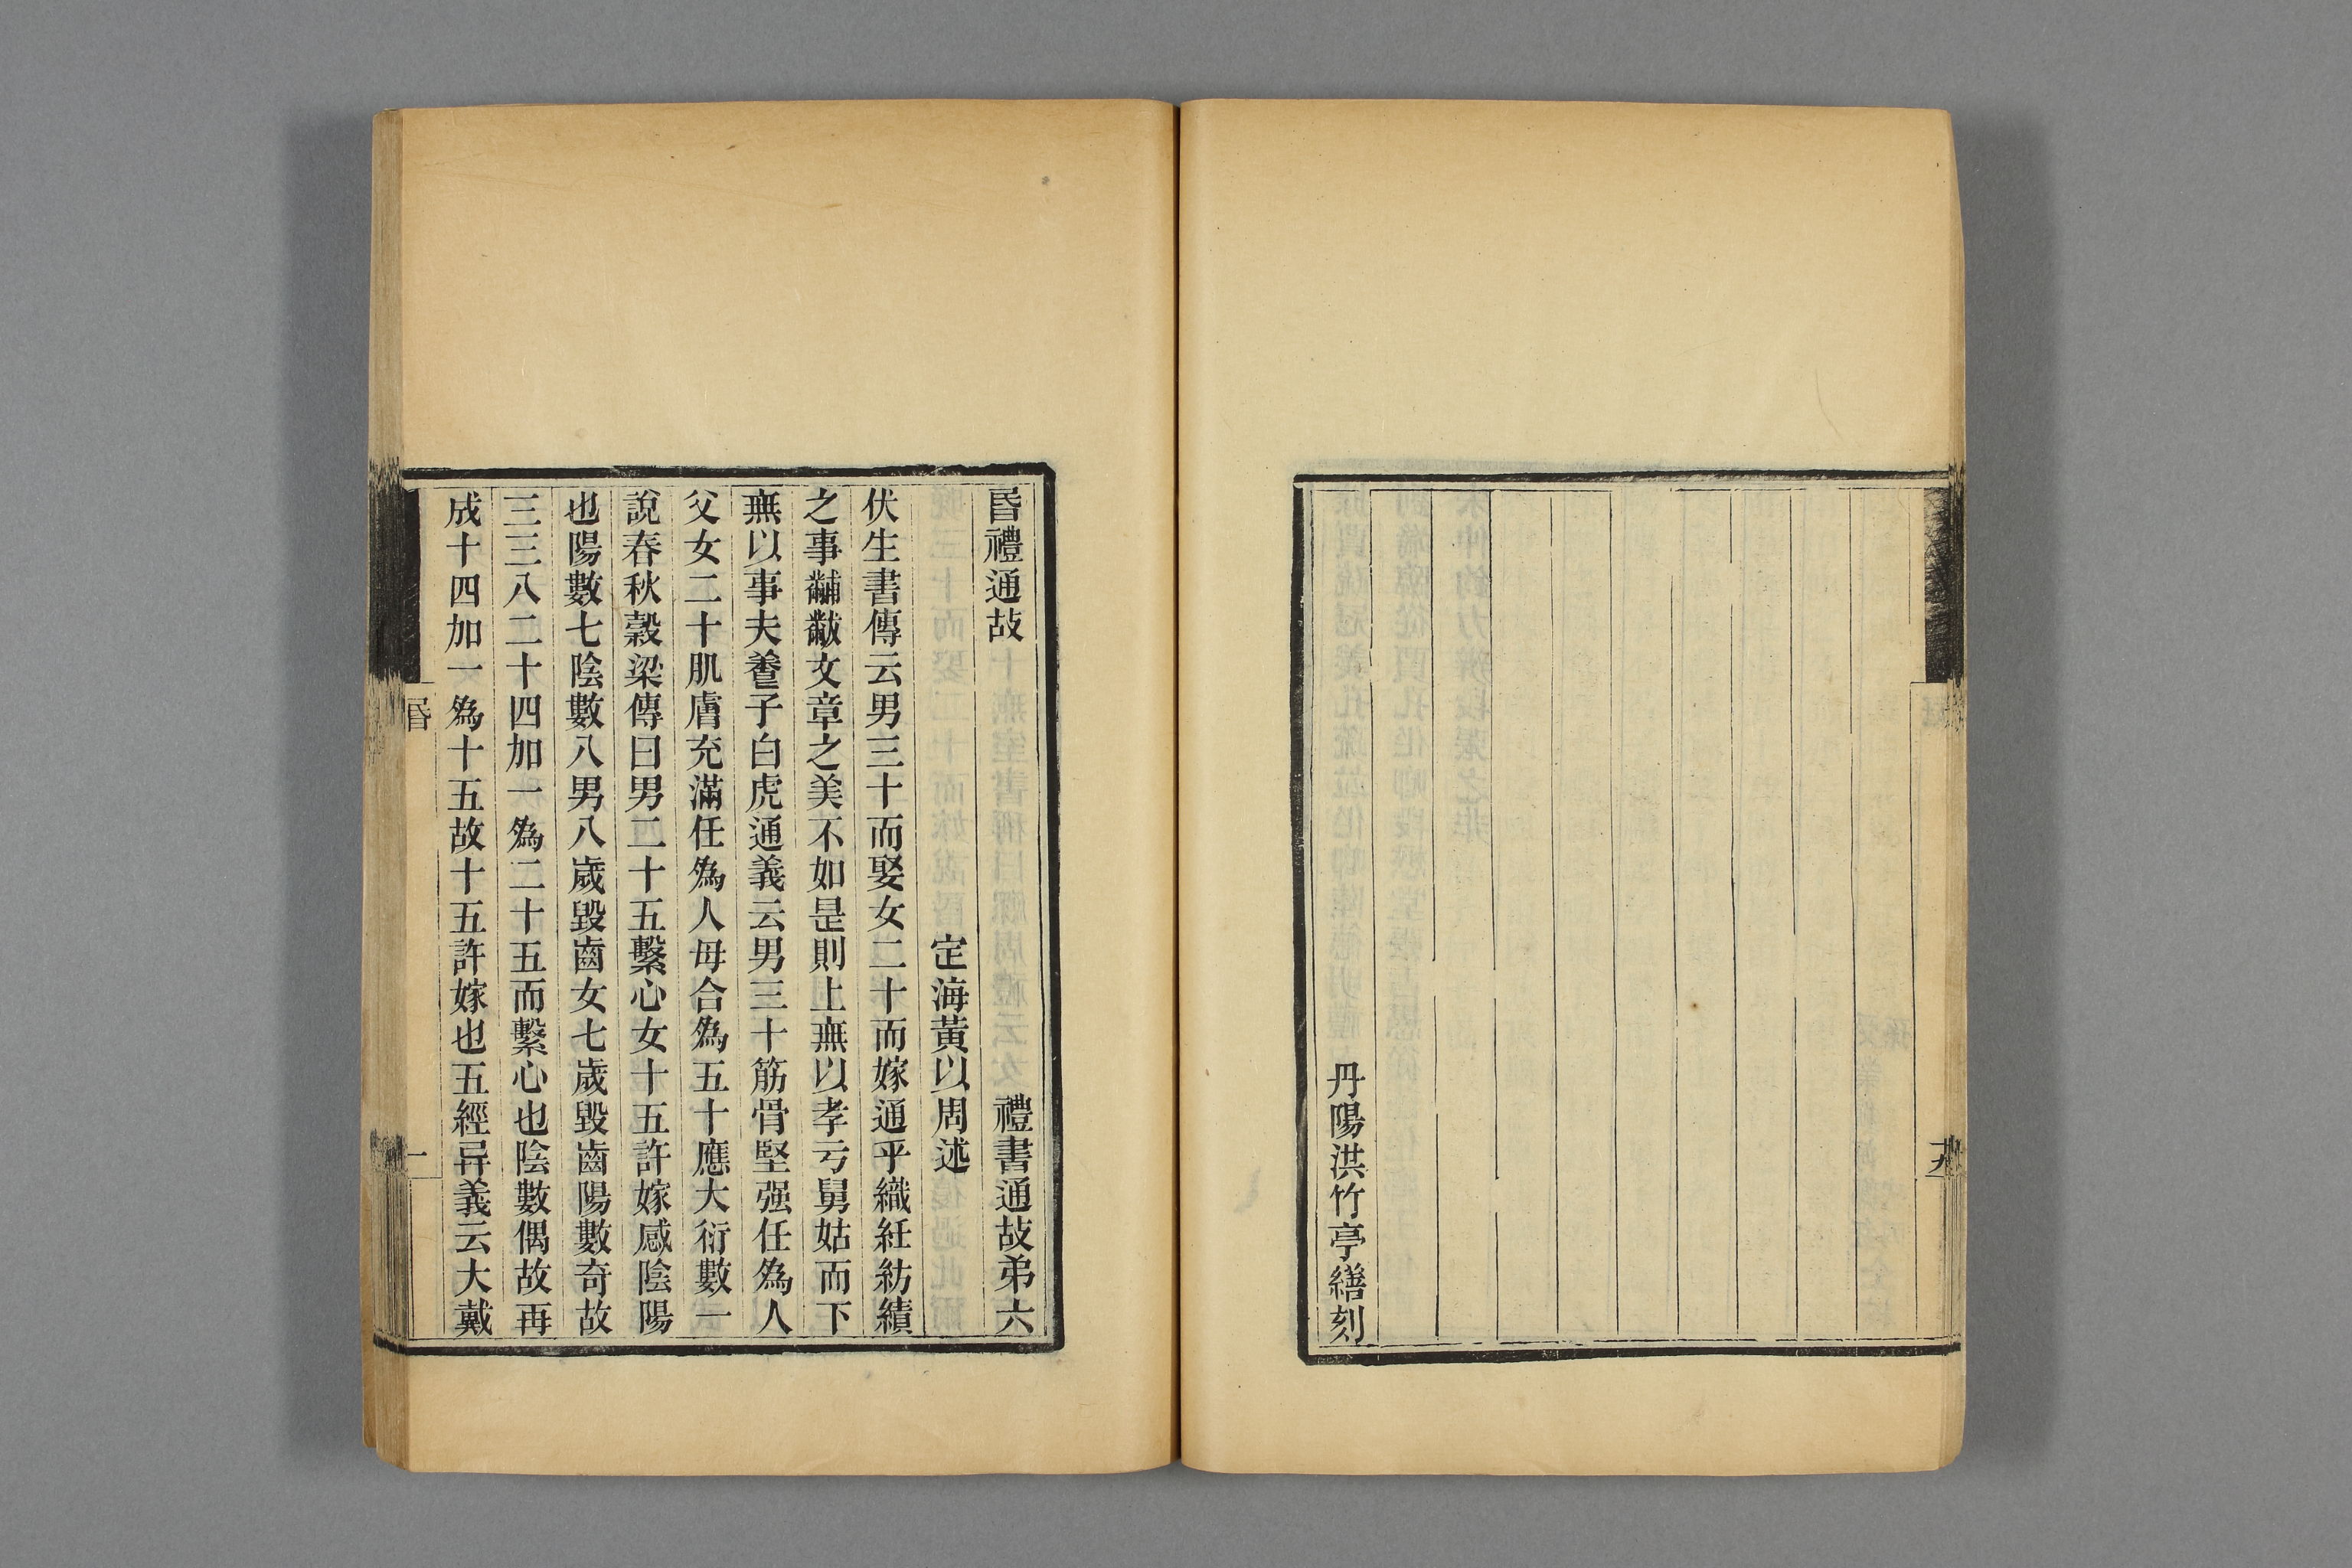 丹陽洪竹亭繕刻
十九
昬禮通故 禮書通故弟六
定海黃以周述
伏生書傳云男三十而娶女二十而嫁通乎織紝紡績
之事黼黻文章之美不如是則上無以孝亏舅姑而下
無以事夫養子白虎通義云男三十筋骨堅强任爲人
父女二十肌膚充滿任爲人母合爲五十應大衍數一
說春秋穀梁傳曰男二十五繫心女十五許嫁感陰陽
也陽數七陰數八男八歲毀齒女七歲毀齒陽數奇故
三三八二十四加一爲二十五而繫心也陰數偶故再
成十四加一爲十五故十五許嫁也五經异義云大戴
昬
一